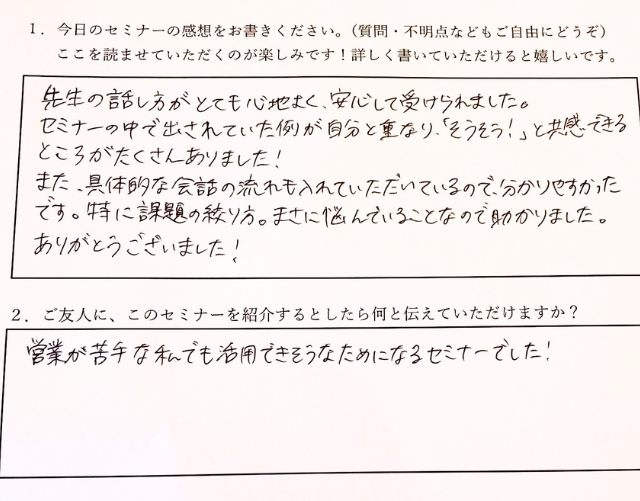 1．今日のセミナーの感想をお書きください。（質問・不明点などもご自由にどうぞ）
ここを読ませていただくのが楽しみです！詳しく書いていただけると嬉しいです。
先生の話し方がとても心地よく、安心して受けられました。
セミナーの中で出されていた例が自分と重なり、「そうそう！」と共感できる
ところがたくさんありました！
また、具体的な会話の流れも入れていただいているので、分かりやすかった
です。特に課題の絞り方。まさに悩んでいることなので助かりました。
ありがとうございました！
2．ご友人に、このセミナーを紹介するとしたら何と伝えていただけますか？
営業が苦手な私でも活用できそうなためになるセミナーでした！